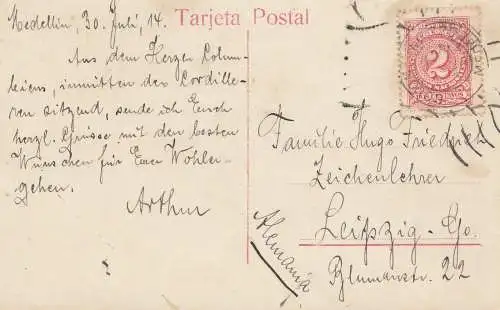 Tarjeta Postal
Medellin, 30. Juli, 14.
Aus dem Herzen Colum-
biens, inmitten der Cordille-
ren sitzend, sende ich Euch
herzl. Grüsse mit den besten
Wünschen für Euer Wohler-
gehen.
Arthur
2
Familie Hugo Friedrich
Zeichenlehrer
Leipzig - Go.
Blumenstr. 22
Alemania